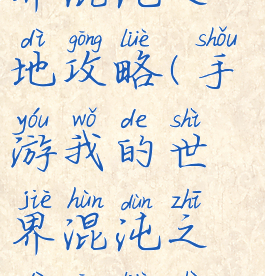 dì gōng lüè shǒu
地攻略(手
yóu wǒ de shì
游我的世
jiè hùn dùn zhī
界混沌之